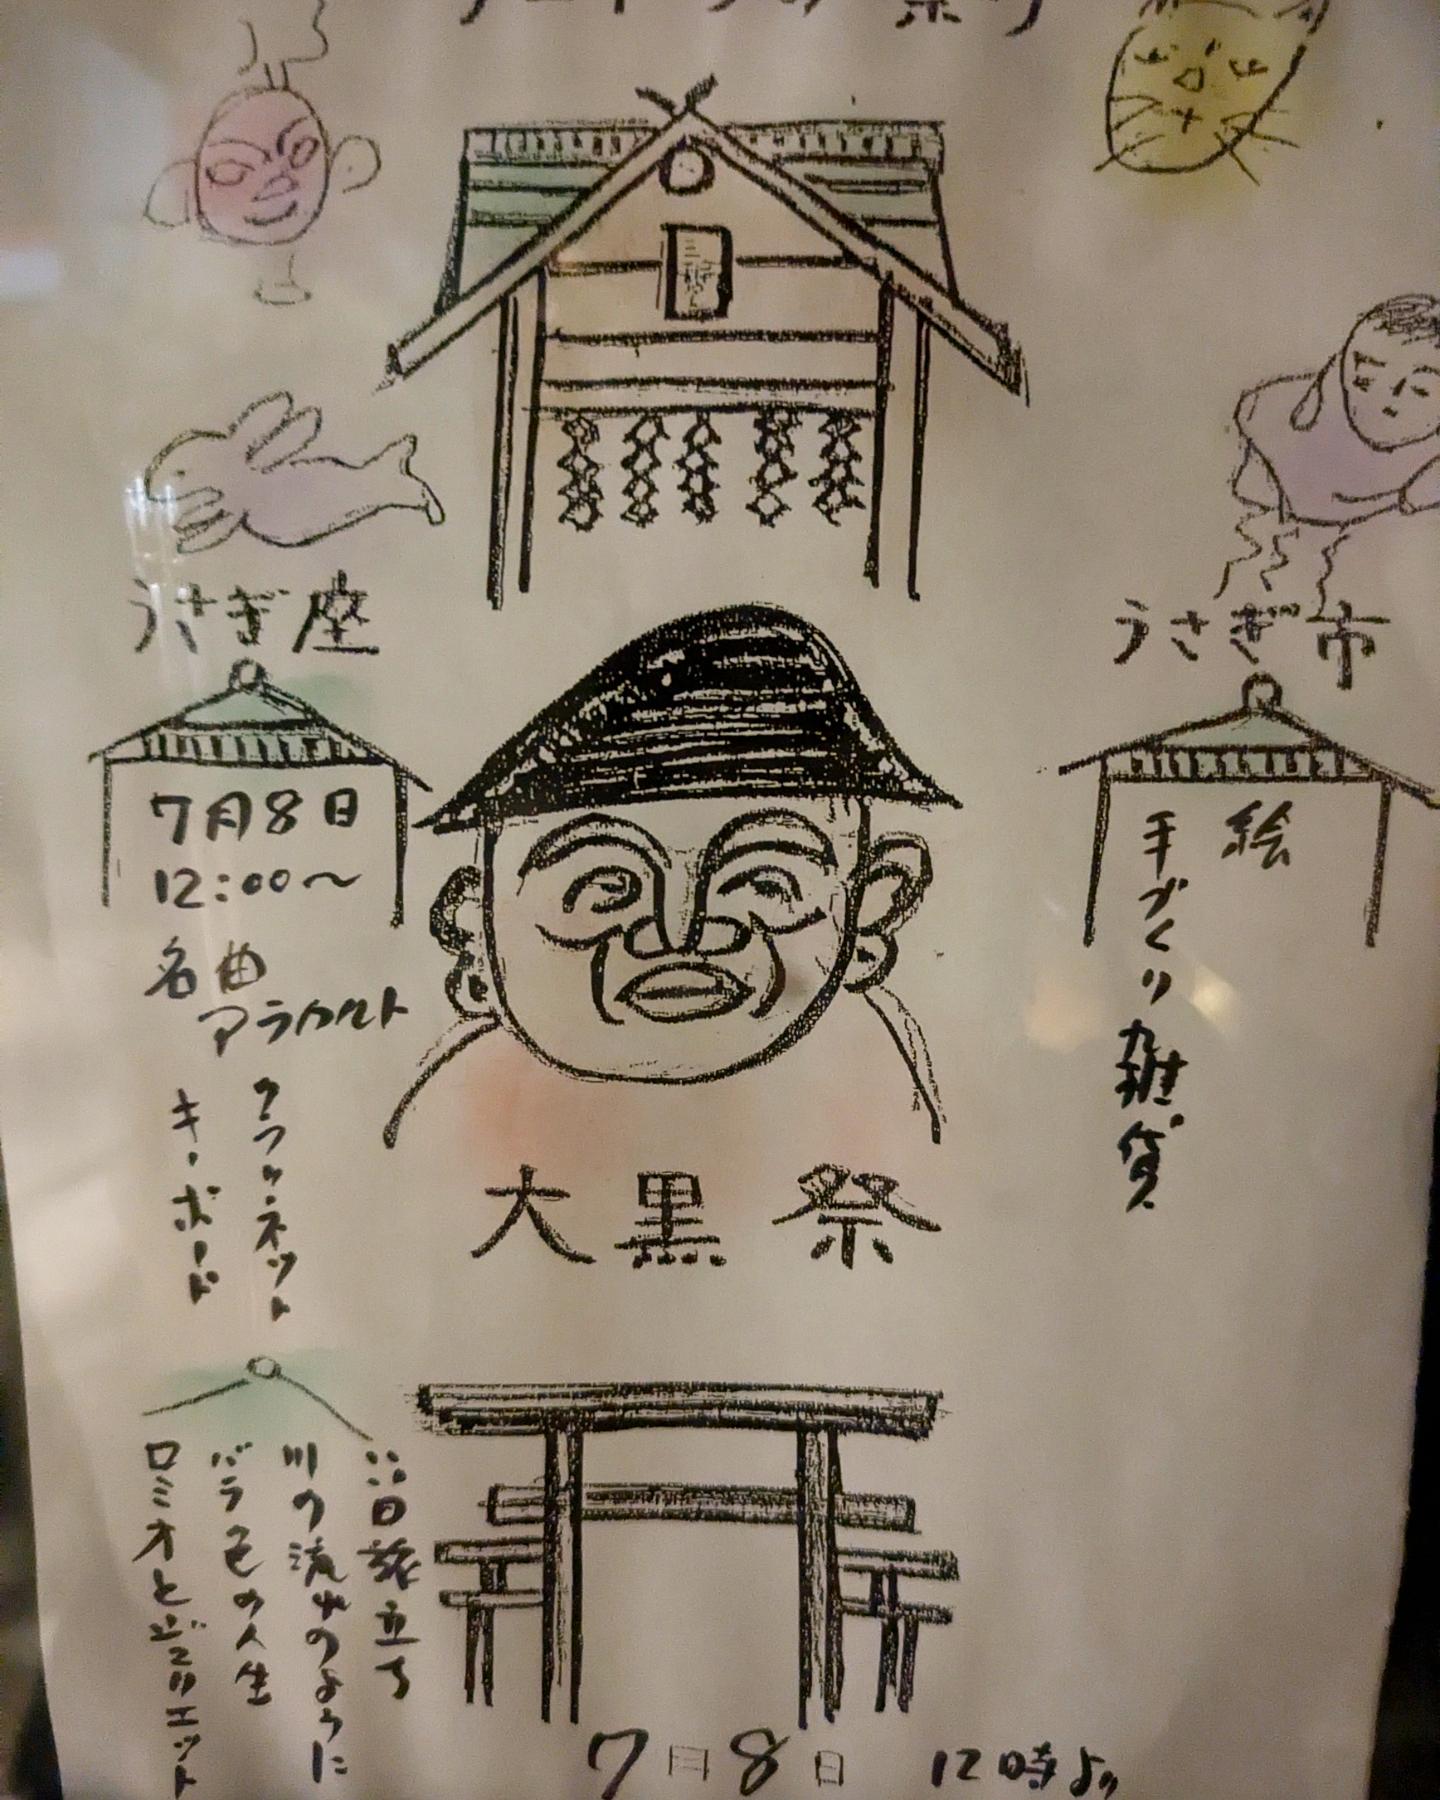 うさぎ座
7月8日
12:00〜
名曲
アラカルト
クラリネット
キーボード
いい日旅立ち
川の流れのように
バラ色の人生
ロミオとジュリエット
大黒祭
7月8日 12時より
うさぎ市
絵
手づくり雑貨